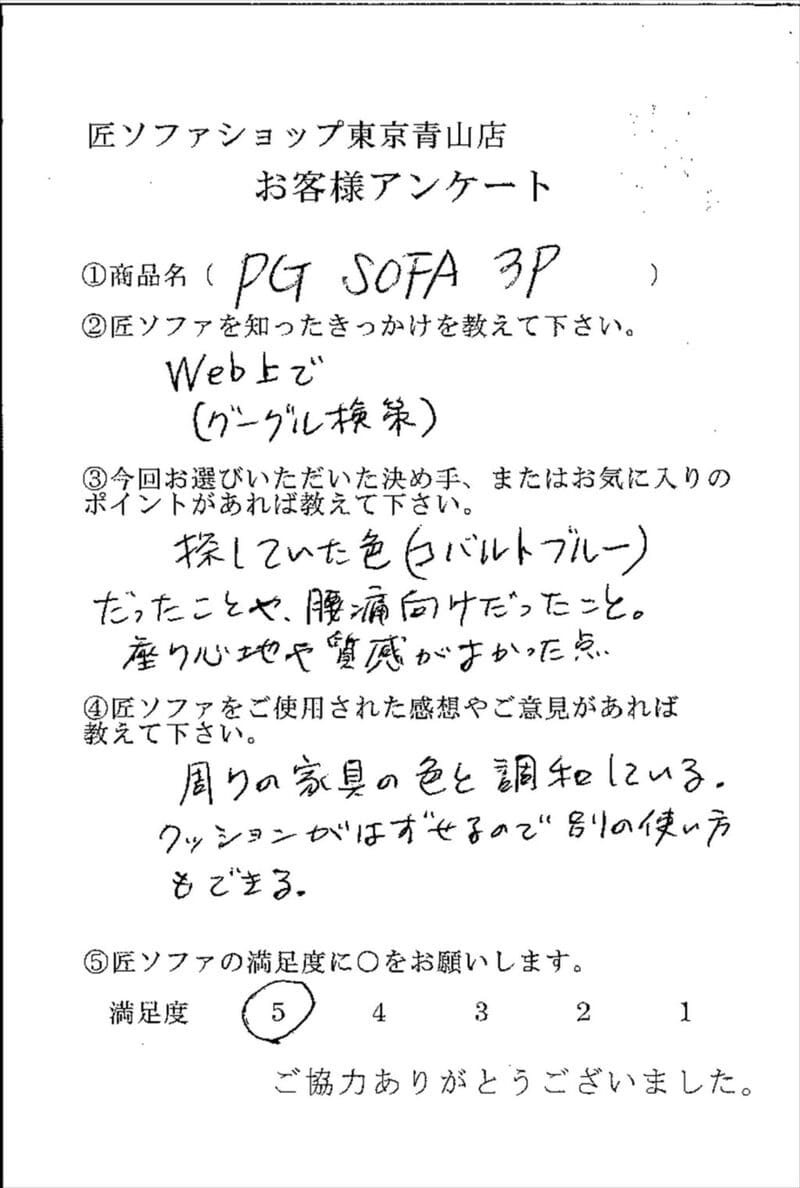 匠ソファショップ東京青山店
お客様アンケート
①商品名（ PG SOFA 3P ）
②匠ソファを知ったきっかけを教えて下さい。
Web上で
(グーグル検策)
③今回お選びいただいた決め手、またはお気に入りの
ポイントがあれば教えて下さい。
探していた色(コバルトブルー)
だったことや、腰痛向けだったこと。
座り心地や質感がよかった点
④匠ソファをご使用された感想やご意見があれば
教えて下さい。
周りの家具の色と調和している。
クッションがはずせるので別の使い方
もできる。
⑤匠ソファの満足度に〇をお願いします。
満足度 5 4 3 2 1
ご協力ありがとうございました。